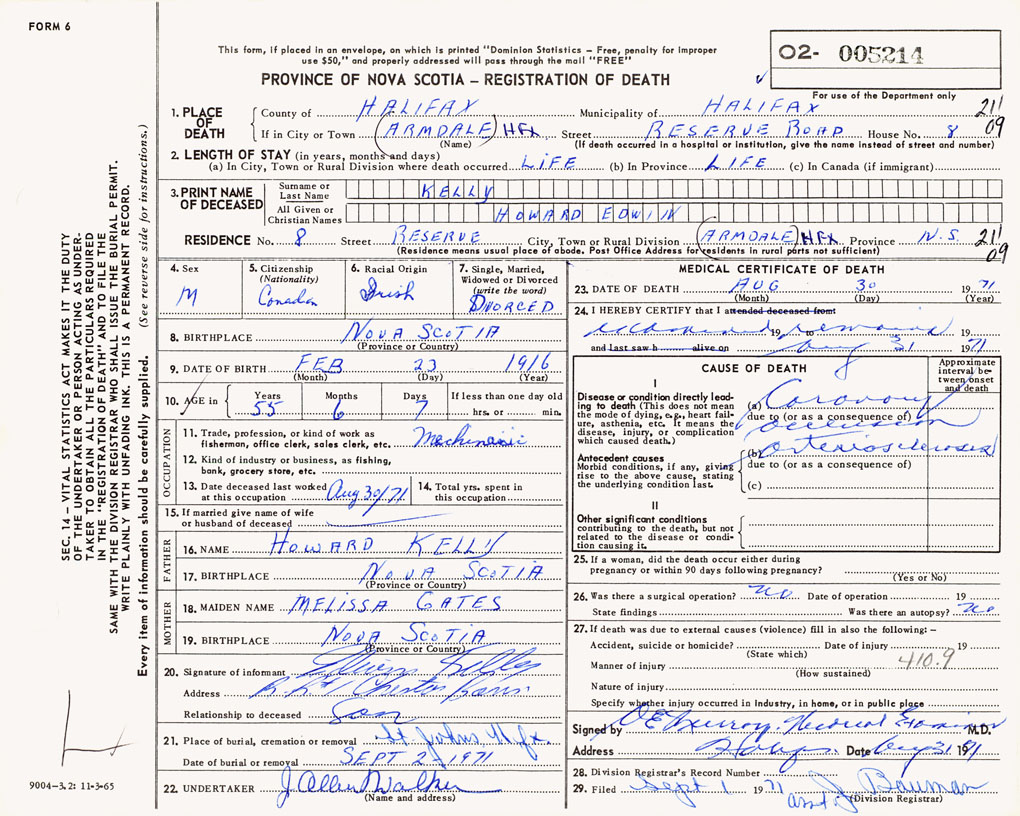 FORM 6
This form, if placed in an envelope, on which is printed "Dominion Statistics – Free, penalty for improper
use $50," and properly addressed will pass through the mail "FREE"
PROVINCE OF NOVA SCOTIA – REGISTRATION OF DEATH
O2- 005214
For use of the Department only
1. PLACE OF DEATH
County of HALIFAX Municipality of HALIFAX 211
If in City or Town ARMDALE HFX Street RESERVE ROAD House No. 8 09
(Name) (If death occurred in a hospital or institution, give the name instead of street and number)
2. LENGTH OF STAY (in years, months and days)
(a) In City, Town or Rural Division where death occurred LIFE (b) In Province LIFE (c) In Canada (if immigrant)
3. PRINT NAME OF DECEASED
Surname or Last Name KELLY
All Given or Christian Names HOWARD EDWIN
RESIDENCE No. 8 Street RESERVE City, Town or Rural Division ARMDALE HFX Province N.S. 211
(Residence means usual place of abode. Post Office Address for residents in rural parts not sufficient) 09
4. Sex
M
5. Citizenship
(Nationality)
Canadian
6. Racial Origin
Irish
7. Single, Married,
Widowed or Divorced
(write the word)
DIVORCED
8. BIRTHPLACE NOVA SCOTIA
(Province or Country)
9. DATE OF BIRTH FEB 23 1916
(Month) (Day) (Year)
10. AGE in Years Months Days If less than one day old
55 6 7 hrs. or min.
OCCUPATION
11. Trade, profession, or kind of work as
fisherman, office clerk, sales clerk, etc.
12. Kind of industry or business, as fishing,
bank, grocery store, etc.
13. Date deceased last worked
at this occupation Aug 30/71
14. Total yrs. spent in
this occupation
15. If married give name of wife
or husband of deceased
FATHER
16. NAME HOWARD KELLY
17. BIRTHPLACE NOVA SCOTIA
(Province or Country)
MOTHER
18. MAIDEN NAME MELISSA GATES
19. BIRTHPLACE NOVA SCOTIA
(Province or Country)
20. Signature of informant
Address
Relationship to deceased Son
21. Place of burial, cremation or removal St. Johns
Date of burial or removal SEPT 2 - 1971
22. UNDERTAKER J. Allen Walker
(Name and address)
MEDICAL CERTIFICATE OF DEATH
23. DATE OF DEATH AUG 30 1971
(Month) (Day) (Year)
24. I HEREBY CERTIFY that I attended deceased from
examined 19 to remains 19
and last saw h alive on Aug 31 1971
CAUSE OF DEATH
Approximate
interval be-
tween onset
and death
I
Disease or condition directly lead-
ing to death (This does not mean
the mode of dying, e.g., heart fail-
ure, asthenia, etc. It means the
disease, injury, or complication
which caused death.)
(a) Coronary
due to (or as a consequence of)
occlusion
Antecedent causes
Morbid conditions, if any, giving
rise to the above cause, stating
the underlying condition last.
(b) arteriosclerosis
due to (or as a consequence of)
(c)
II
Other significant conditions
contributing to the death, but not
related to the disease or condi-
tion causing it.
25. If a woman, did the death occur either during
pregnancy or within 90 days following pregnancy?
(Yes or No)
26. Was there a surgical operation? no Date of operation 19
State findings Was there an autopsy? no
27. If death was due to external causes (violence) fill in also the following: –
Accident, suicide or homicide? Date of injury 19
(State which)
Manner of injury 410.9
(How sustained)
Nature of injury
Specify whether injury occurred in industry, in home, or in public place
Signed by Medical Examiner M.D.
Address Date Aug 31 1971
28. Division Registrar's Record Number
29. Filed Sept 1 1971 asst. J. Bauman
(Division Registrar)
SEC. 14 – VITAL STATISTICS ACT MAKES IT THE DUTY
OF THE UNDERTAKER OR PERSON ACTING AS UNDER-
TAKER TO OBTAIN ALL THE PARTICULARS REQUIRED
IN THE "REGISTRATION OF DEATH" AND TO FILE THE
SAME WITH THE DIVISION REGISTRAR WHO SHALL ISSUE THE BURIAL PERMIT.
WRITE PLAINLY WITH UNFADING INK. THIS IS A PERMANENT RECORD.
Every item of information should be carefully supplied. (See reverse side for instructions.)
9004-3.2: 11-3-65